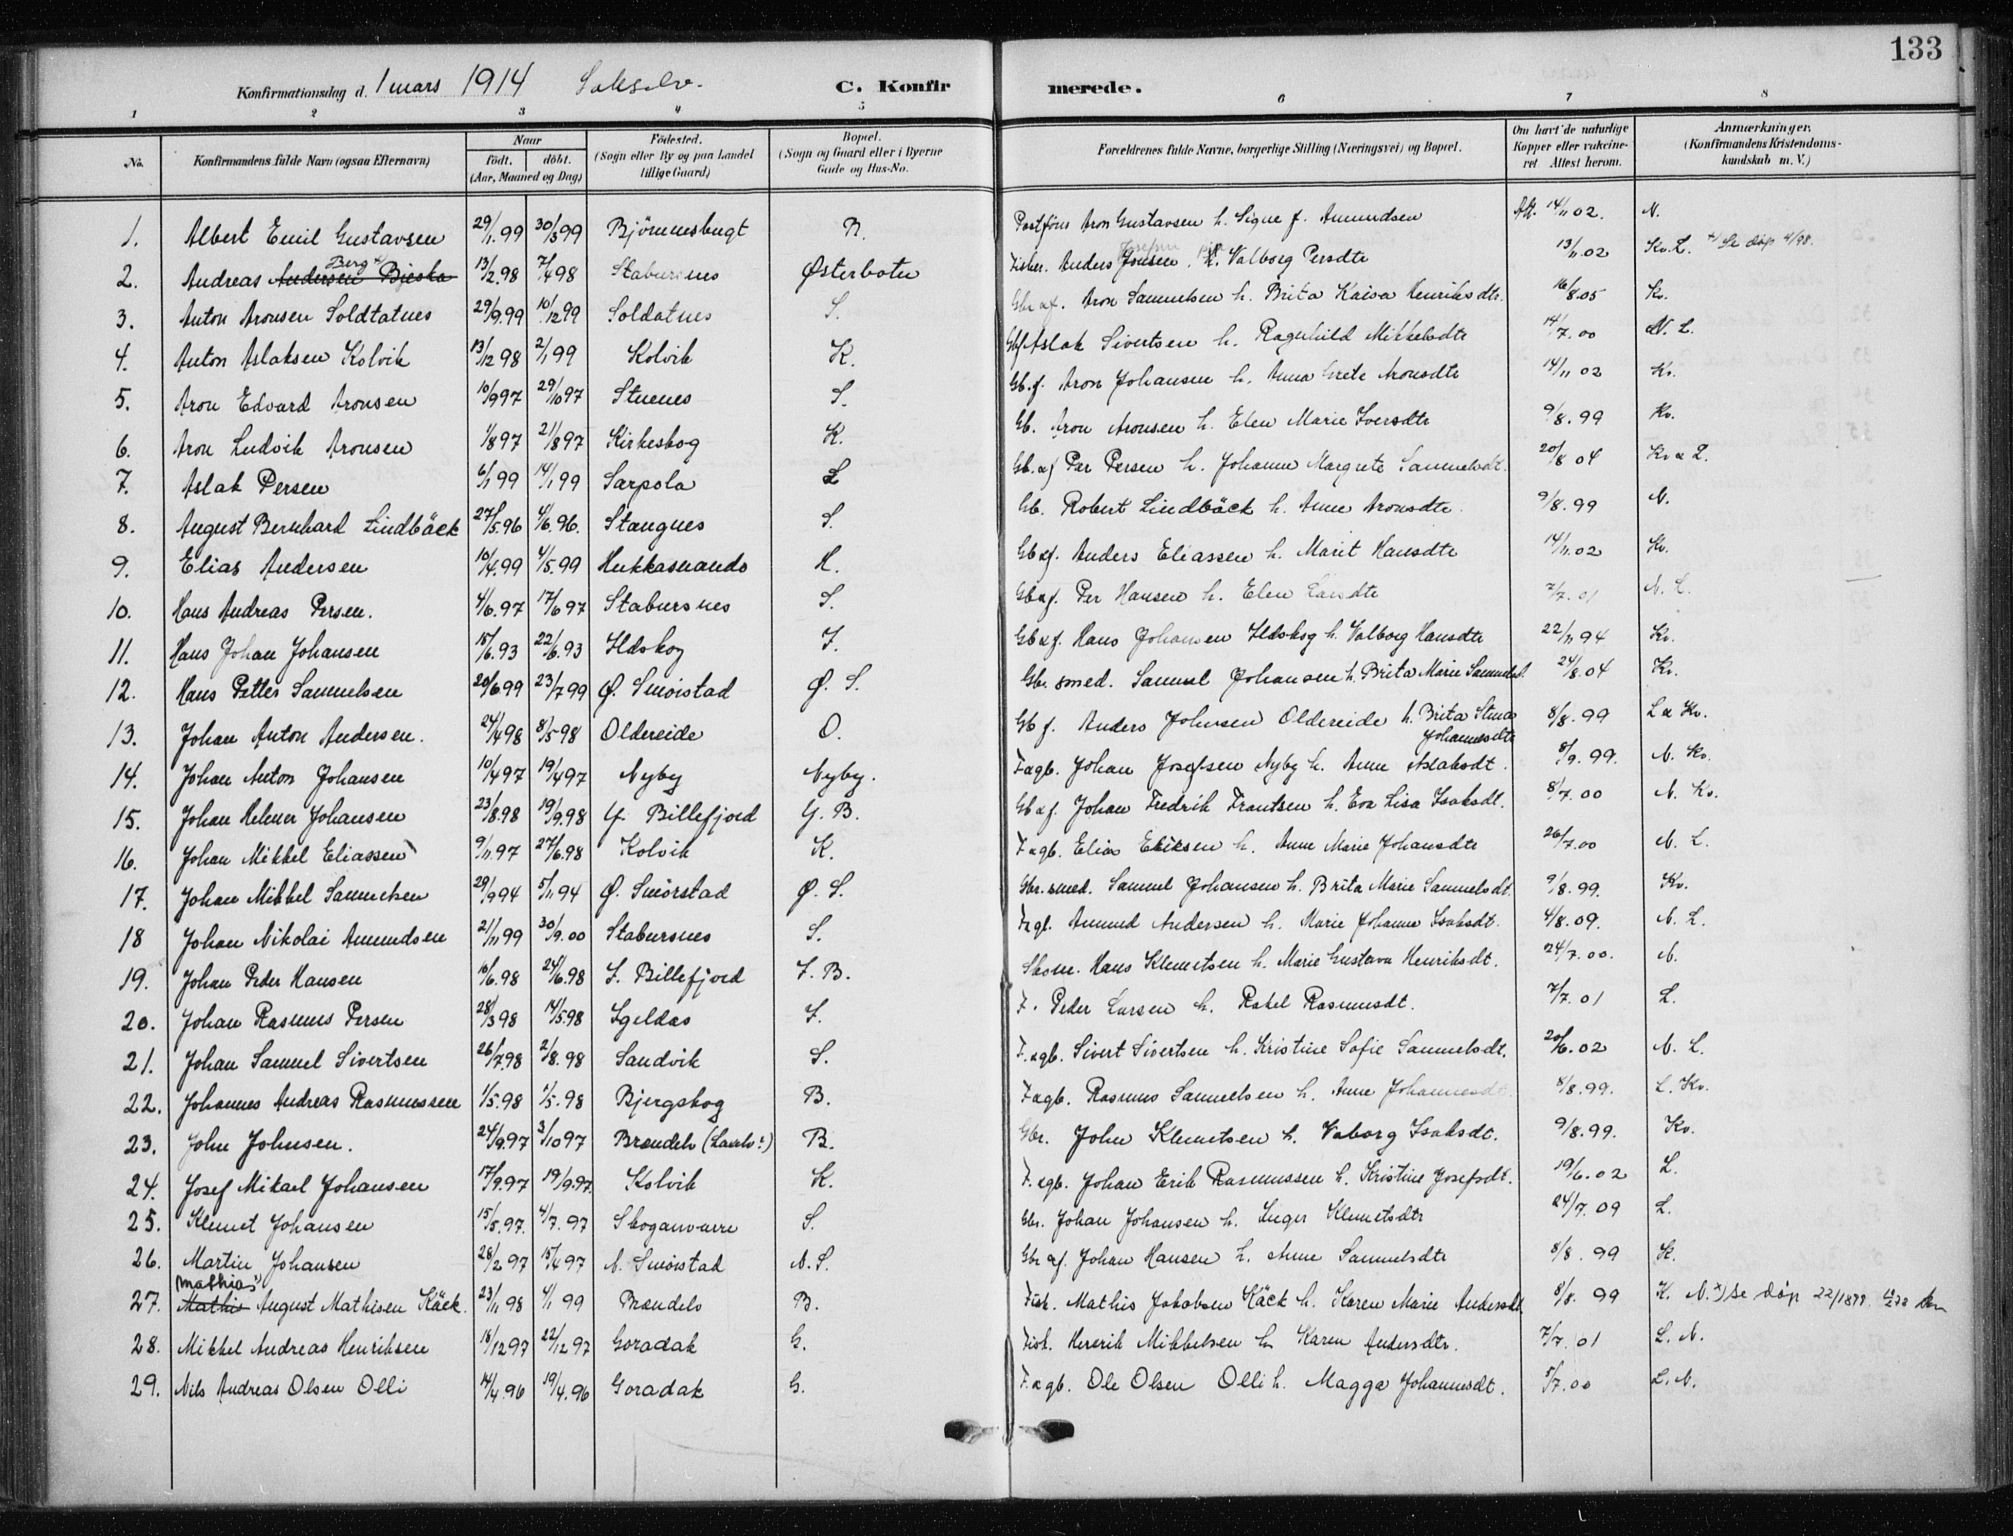 133
Konfirmationsdag d. 1 mars 1914 C. Konfirmerede.
1 2 3 4 5 6 7 8
No. Konfirmandens fulde Navn (ogsaa Efternavn) Naar født. døbt. (Aar, Maaned og Dag) Fødested. (Sogn eller By og paa Landet tillige Gaard) Bopæl. (Sogn og Gaard eller i Byerne Gade og Hus-No. Forældrenes fulde Navne, borgerlige Stilling (Næringsvei) og Bopæl. Om havt de naturlige Kopper eller vaccineret Attest herom. Anmærkninger. (Konfirmandens Kristendomskundskab m. V.)
1. Albert Emil Gustavsen 29/1.99 30/3 99 Bjørnnesbugt B. Aron Gustavsen h. Signe f. Amundsen 14/11 02. N.
2. Andreas Andersen Bjeska Berg 13/2.98 7/4 98 Østerbotn Fisker. Anders Valborg Persdtr 13/11.02 Kv. L. Se døp 4/98.
3. Anton Aronsen Soldtatnes 29/9.99 10/12 99 Soldatnes S. Aron Samuelsen h. Brita Kaisa Henriksdtr. 16/8.05 Kv.
4. Anton Aslaksen Kolvik 13/12 98 2/1 99 Kolvik K. Aslak Sivertsen h. Ragnhild Mikkelsdtr 14/7.00 N. L.
5. Aron Edvard Aronsen 10/9 97 29/10 97 S. Gb. f. Aron Johansen h. Anna Grete Aronsdtr 14/11 02 Kv.
6. Aron Ludvik Aronsen 1/8 97 21/8 97 Kirkeskog K. Gb. Aron Aronsen h. Elen Marie Iversdtr 9/8.99 Kv.
7. Aslak Persen 6/1 99 14/1 99 Sarpola L Gb. & f Per Persen h. Johanne Margrete Samuelsdt. 20/8 04 Kv & L.
8. August Bernhard Lindbäck 27/5.96 4/6.96. Stangnes S. Gb. Robert Lindbäck h. Anne Aronsdtr. 9/8.99 N.
9. Elias Andersen 10/4.99 4/5.99 H. Gb & f. Anders Eliassen h. Marit Hansdtr 14/11.02 Kv.
10. Hans Andreas Persen. 4/6.97 17/6 97 Stabursnes S. Gb & f. Per Hansen h. Elen Larsdtr 7/7.01 N. L.
11. Hans Johan Johansen 15/6.93 22/6.93 Ildskog I. Gb & f. Hans Johansen Ildskog h. Valborg Hansdtr 22/11 94 Kv.
12. Hans Petter Samuelsen 20/6 99 23/7 99 Ø. Smörstad Ø. S. Gbr. smed. Samuel Johansen h. Brita Marie Samuelsd. 24/8.04 Kv.
13. Johan Anton Andersen. 24/4 98 8/5 98 Oldereide O. Gb f. Anders Johnsen Oldereide h. Brita Stina Johannesdtr 8/8.99 L & Kv.
14. Johan Anton Johansen 10/4 97 19/4 97 Nyby Nyby. F & gb. Johan Josefsen Nyby h. Anne Aslaksdt. 8/9.99. N. Kv.
15. Johan Helmer Johansen 23/8.98 19/9.98 Y. Billefjord Y. B. Gb & f. Johan Fredrik Frantsen h. Eva Lisa Isaksdt. 8/7.00 N. Kv.
16. Johan Mikkel Eliassen 9/11.97 27/6.98 Kolvik K. F & gb. Elias Eliksen h. Anne Marie Johansdtr 26/7.00 N. L.
17. Johan Mikkel Samuelsen 29/9 94 5/11 94 Ø. Smörstad Ø. S. Gbr. smed. Samuel Johansen h. Brita Marie Samuelsdt. 9/8.99. Kv.
18 Johan Nikolai Amundsen 21/11 99 30/9.00 Stabursnes S. Amund Andersen h. Marie Johanne Isaksdt. 4/8.09. N. L.
19. Johan Peder Hansen 16/6.98 24/6.98 I. Billefjord I. B. Skom. Hans Klemetsen h. Marie Gustava Henriksdt. 24/7.00. N.
20. Johan Rasmus Persen 28/3 98 14/5.98 Igeldas I. F. Peder Larsen h. Rakel Rasmusdt. 7/7.01 L.
21. Johan Samuel Sivertsen 26/7.98 2/8.98 Sandvik S. F. & gb. Sivert Sivertsen h. Kristine Sofie Samuelsdt. 20/6.02 N. L.
22. Johannes Andreas Rasmussen 1/5.98 1/5.98 Bjergskog B. F & gb. Rasmus Samuelsen h. Anne Johannesdt 8/8.99. L. Kv.
23. John Johnsen. 24/9.97 3/10 97 Brændelv B. Gbr. John Klemetsen h. Vaborg Isaksdt. 9/8.99. Kv.
24. Josef Mikael Johansen 17/9.97 19/9.97. Kolvik K. F. & gb. Johan Erik Rasmussen h. Kristine Josefsdt. 19/6.02 L.
25. Klemet Johansen 15/5.97. 4/7.97 Skoganvarre S. Gbr. Johan Johansen h. Inger Klemetsdtr 24/7.09 L.
26. Martin Johansen 28/2 97 15/4 97 N. Smörstad N. S. Gbr & f. Johan Hansen h. Anne Samuelsdtr 8/8.99 K.
27. Mathis Mathias August Mathisen Käck. 23/11 98 4/1 99 Brændelv B. Fisk. Mathis Jakobsen Käck h. Karen Marie Andersdt. 8/8.99 K. N. x) se døp 22/1899.
28. Mikkel Andreas Henriksen 18/12 97 22/12 97 Goradak G. Fisk. Henrik Mikkelsen h. Karen Andersdtr. 7/7.01 L. N.
29. Nils Andreas Olsen Olli 14/4.96 19/4.96 Goradak G. F. & gb. Ole Olsen Olli h. Magga Johannesdt. 5/7.00 L. N.